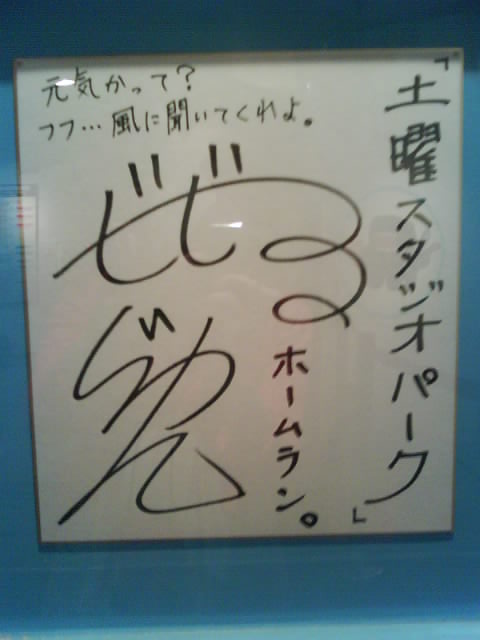 「土曜スタジオパーク」
元気かって?
フフ…風に聞いてくれよ。
ホームラン。